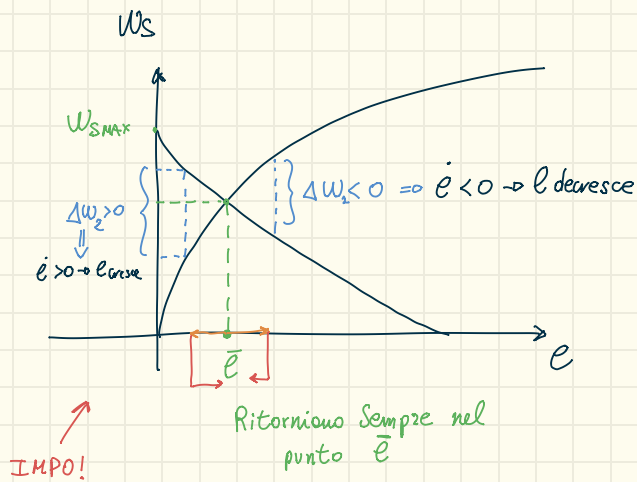 Ws
WSMAX
ΔW₂>0
⇓
ė>0→e cresce
ΔW₂<0 ⇒ ė<0→e decresce
e
ē
Ritorniamo Sempre nel
punto ē
IMPO!